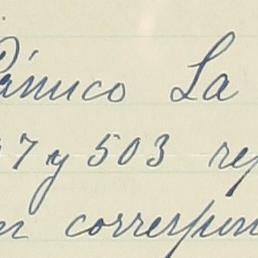 Pánuco La
7 y 503 rep
n correspon